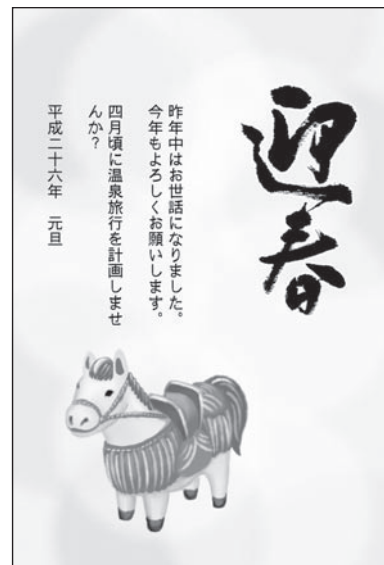 迎春
昨年中はお世話になりました。
今年もよろしくお願いします。
四月頃に温泉旅行を計画しませ
んか？
平成二十六年　元旦